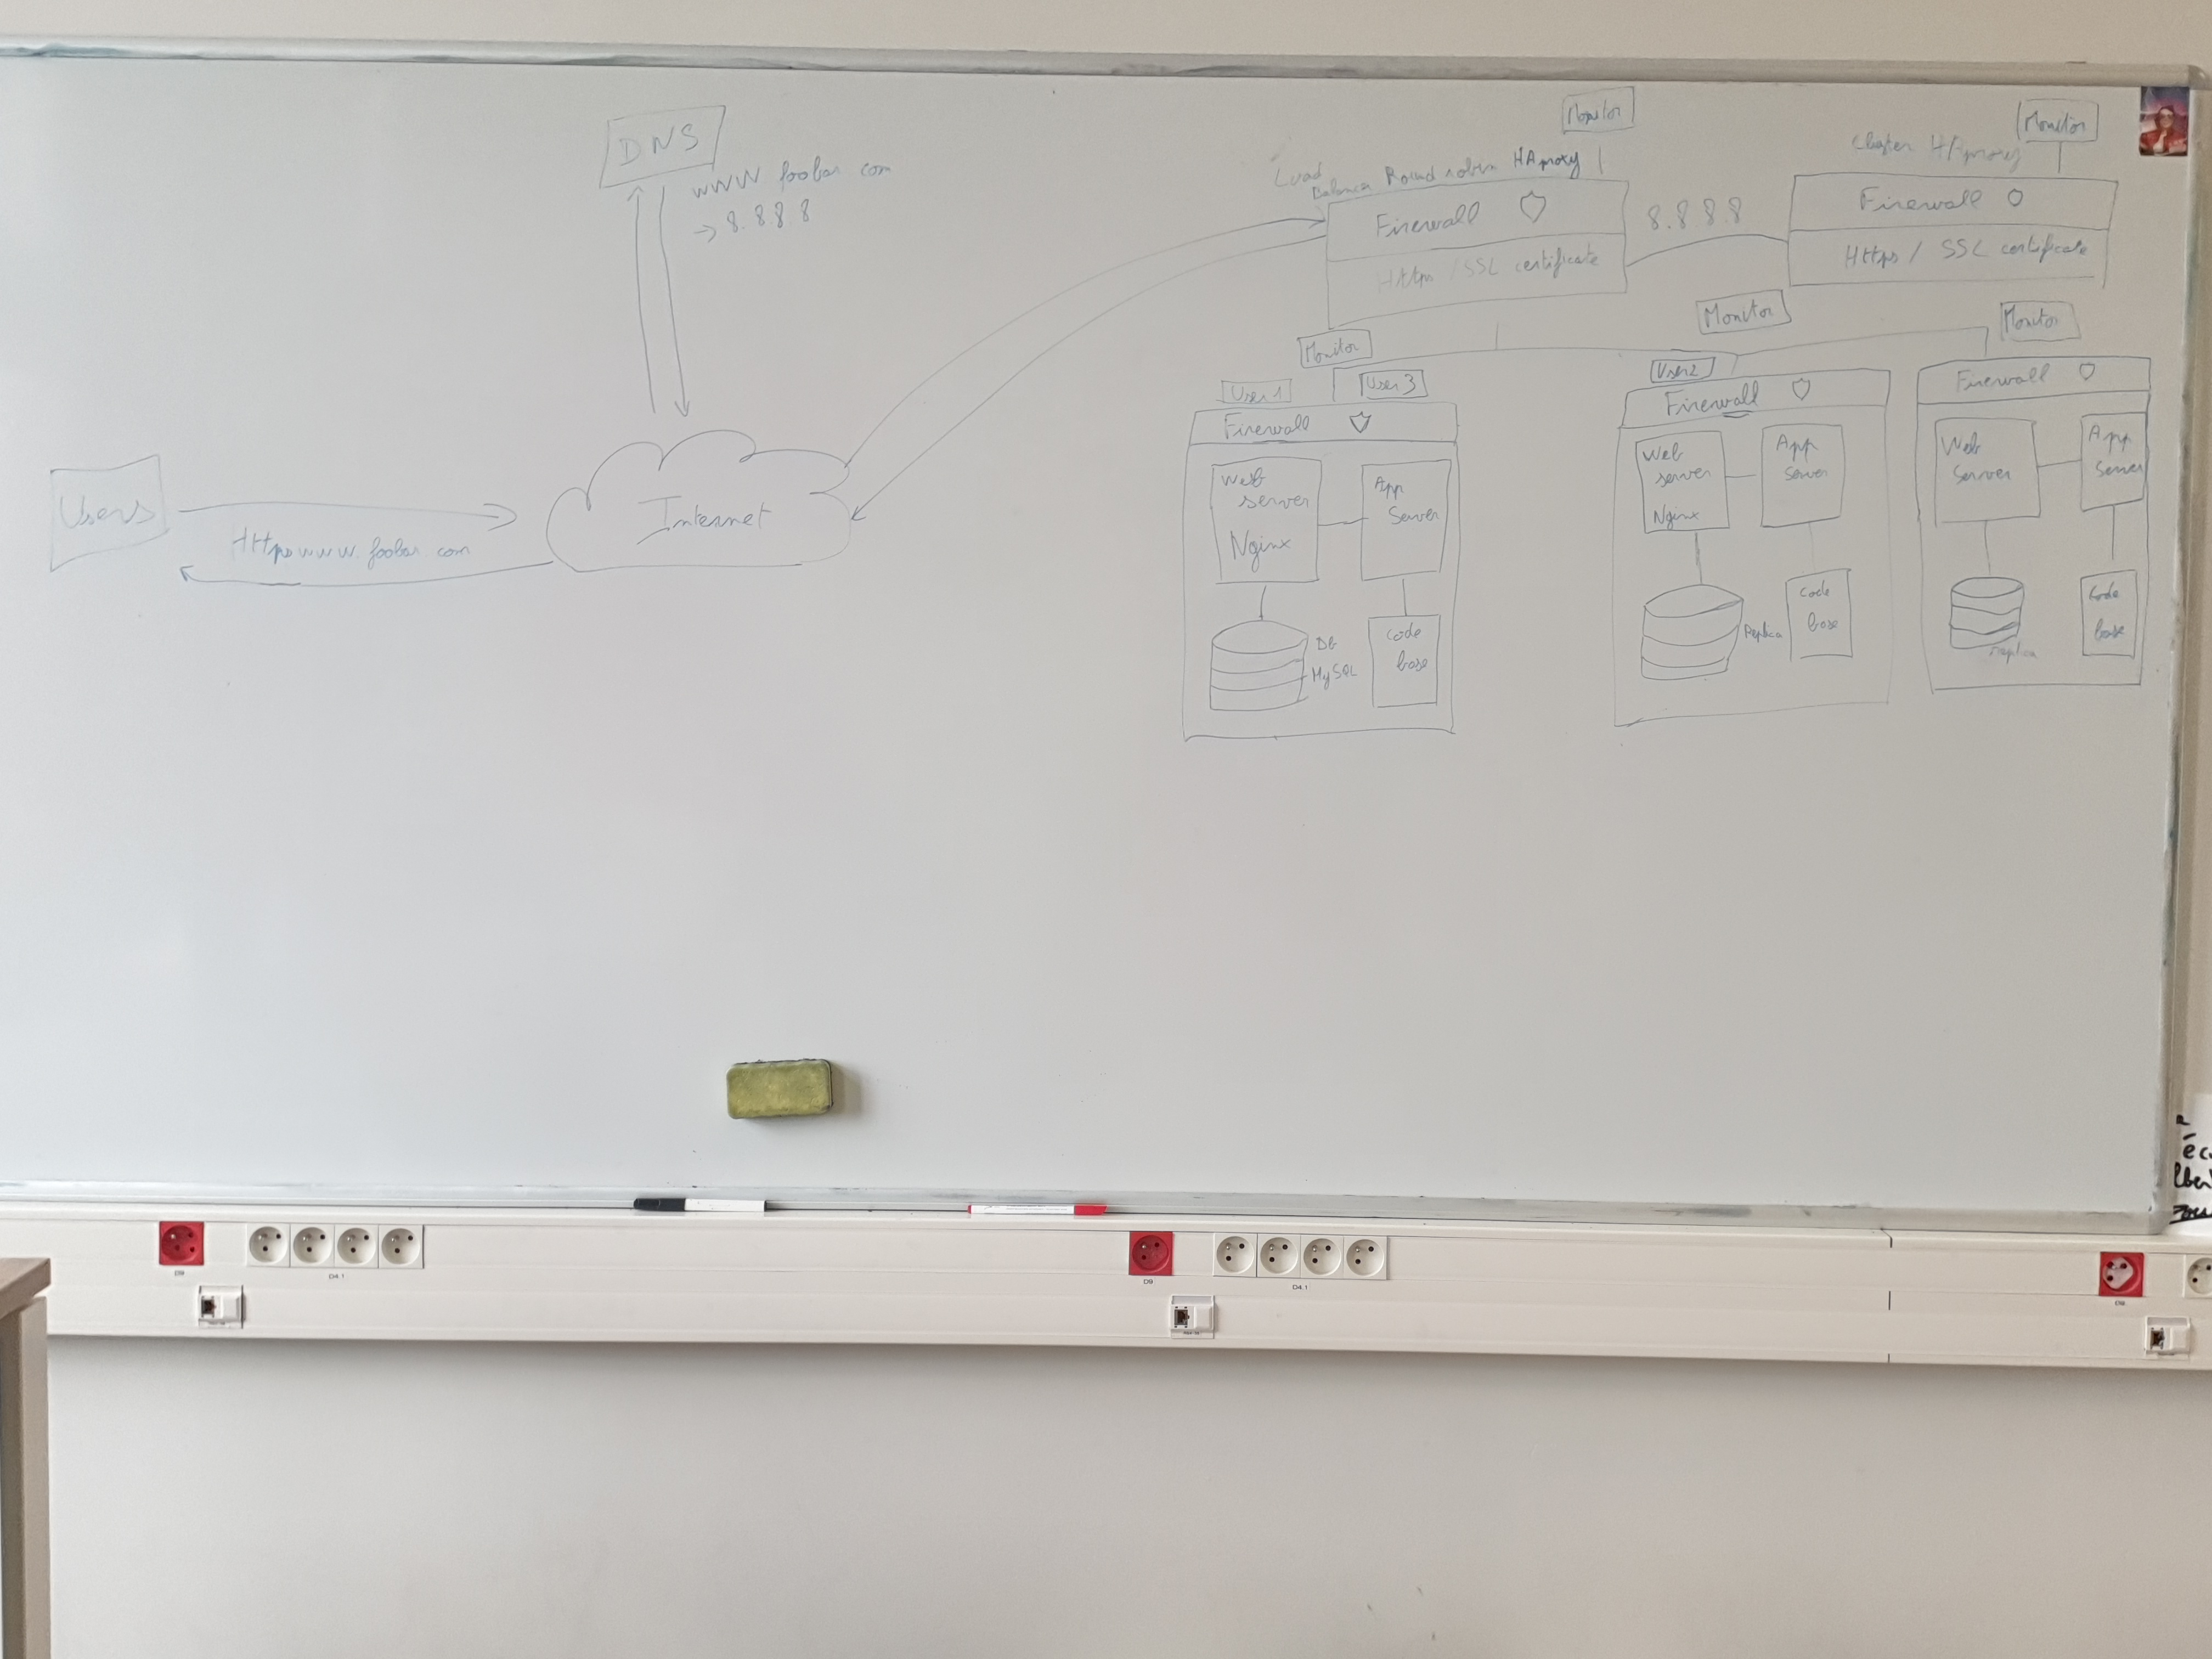 DNS
www foobar com
→ 8.8.8.8
Users
Https www.foobar com
Internet
Monitor
Load
Balancer Round robin HAproxy
Firewall
Https / SSL certificate
8.8.8.8
Monitor
HAproxy
Firewall
Https / SSL certificate
Monitor
User 1
User 3
Firewall
Web
server
Nginx
App
Server
Db
MySQL
code
base
Monitor
User 2
Firewall
Web
server
Nginx
App
server
Replica
Code
base
Monitor
Firewall
Web
Server
App
Server
Replica
Code
base
D9
D4.1
D9
D4.1
D9